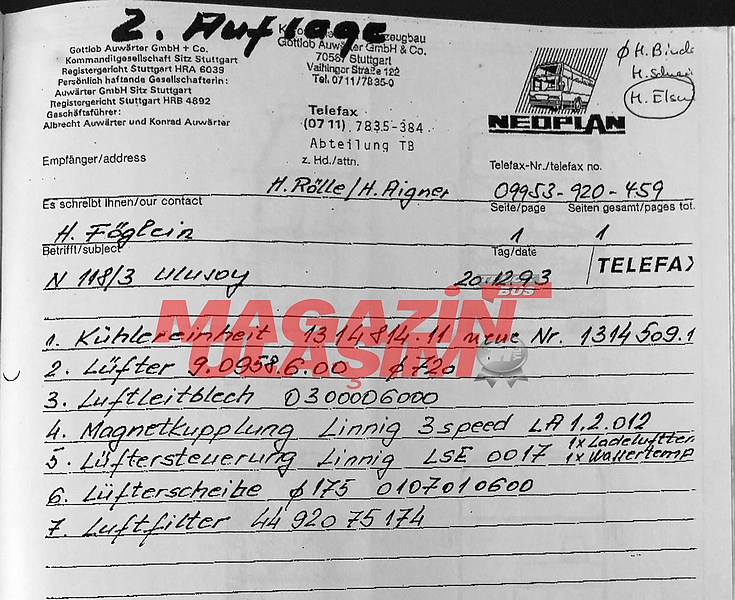 2. Auflage
Gottlob Auwärter GmbH + Co.
Kommanditgesellschaft Sitz Stuttgart
Registergericht Stuttgart HRA 6039
Persönlich haftende Gesellschafterin:
Auwärter GmbH Sitz Stuttgart
Registergericht Stuttgart HRB 4892
Geschäftsführer:
Albrecht Auwärter und Konrad Auwärter
Gottlob Auwärter GmbH & Co.
70567 Stuttgart
Vaihinger Straße 122
Tel. 0711/7835-0
Telefax
(0711) 7835-384
Abteilung TB
z. Hd./attn.
NEOPLAN
Ø H. Binde
(H. Elsn
Empfänger/address
Telefax-Nr./telefax no.
H. Rölle/H. Aigner
09953-920-459
Es schreibt Ihnen/our contact
Seite/page
Seiten gesamt/pages tot.
H. Föglein
1
1
Betrifft/subject
Tag/date
TELEFAX
N 118/3 Ulusoy
20.12.93
MAGAZİN BUS
ULAŞIM
1. Kühlereinheit 1314814.11 neue Nr. 1314509.1
2. Lüfter 9.0958.6.00 Ø 720
3. Luftleitblech 0300006000
4. Magnetkupplung Linnig 3 speed LA 1.2.012
5. Lüftersteuerung Linnig LSE 0017 1x Ladelufttem
1x Wassertemp
6. Lüfterscheibe Ø 175 0107010600
7. Luftfilter 44 920 75 174